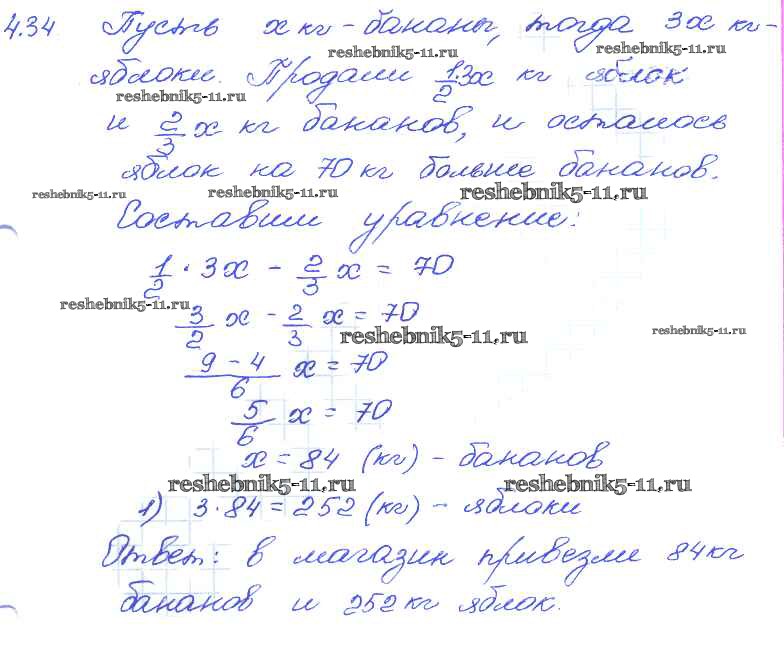 4.34 Пусть x кг - бананы, тогда 3x кг -
reshebnik5-11.ru reshebnik5-11.ru
яблоки. Продали 1/2·3x кг яблок
reshebnik5-11.ru
и 2/3 x кг бананов, и осталось
яблок на 70 кг больше бананов.
reshebnik5-11.ru reshebnik5-11.ru reshebnik5-11.ru
Составим уравнение:
1/2 · 3x - 2/3 x = 70
reshebnik5-11.ru
3/2 x - 2/3 x = 70
reshebnik5-11.ru reshebnik5-11.ru
9 - 4/6 x = 70
5/6 x = 70
x = 84 (кг) - бананов
reshebnik5-11.ru reshebnik5-11.ru
1) 3·84 = 252 (кг) - яблоки
Ответ: в магазин привезли 84 кг
бананов и 252 кг яблок.